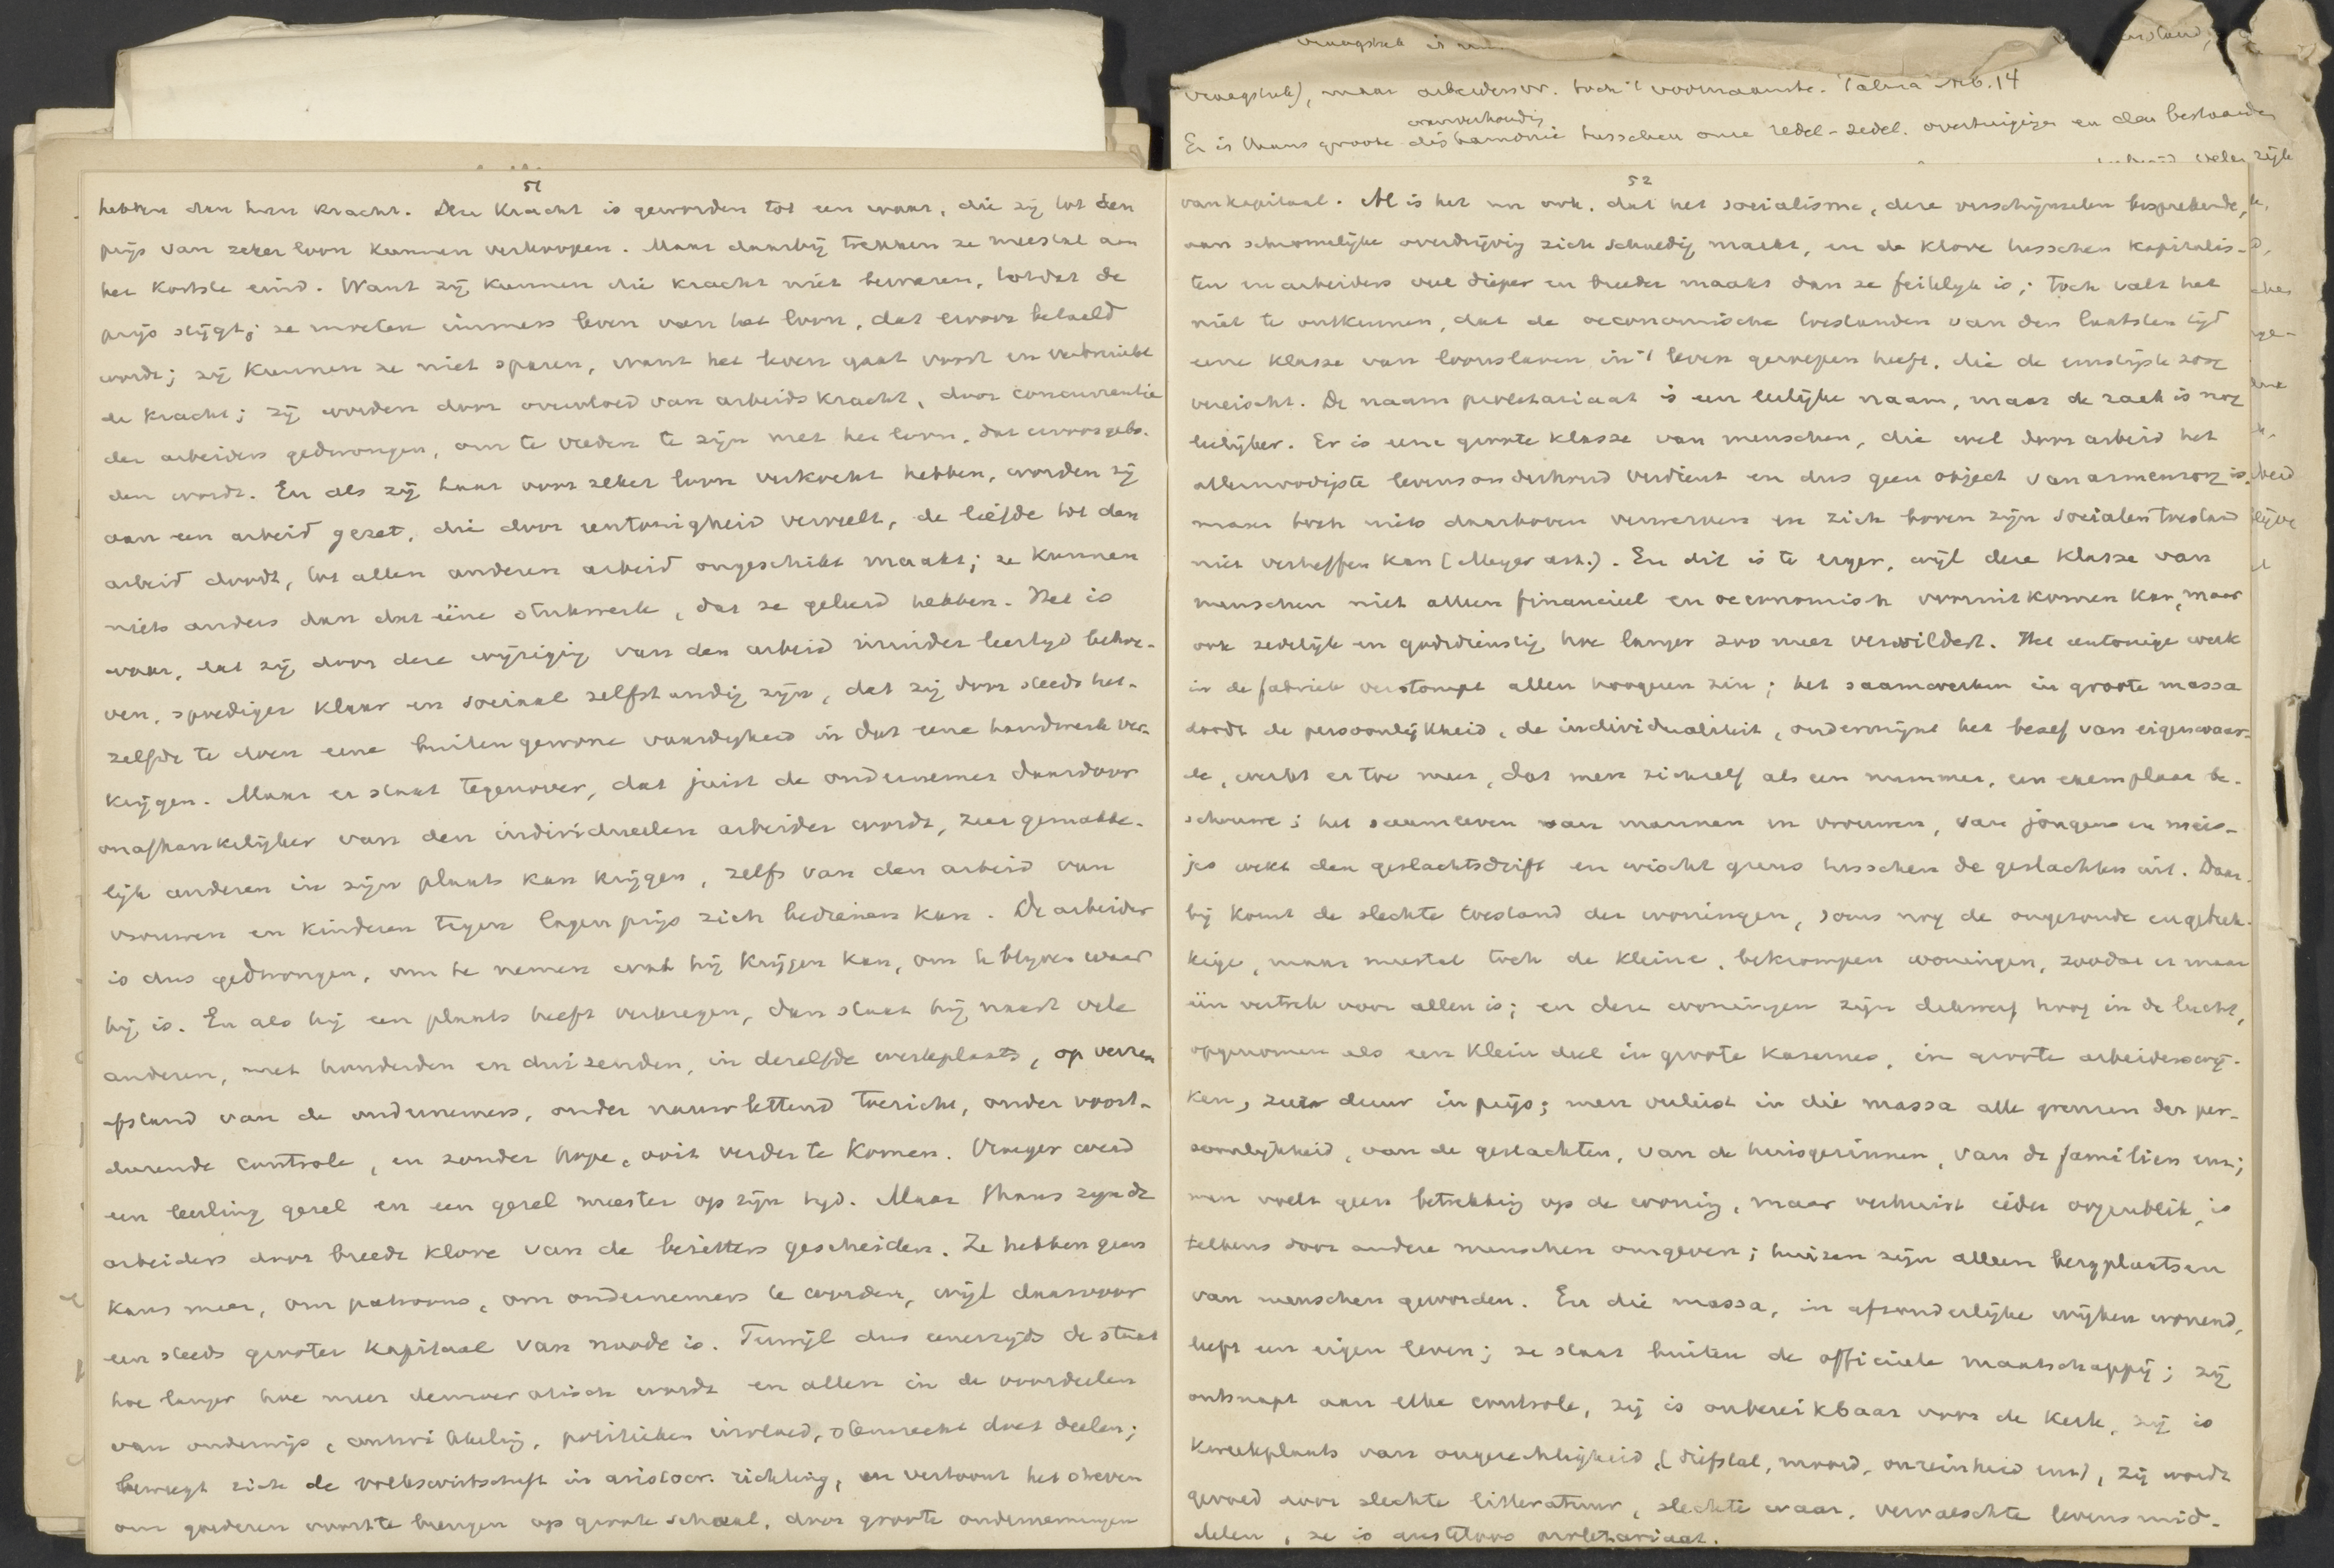 51
hebben dan hun kracht. Deze kracht is geworden tot een waar, die zij tot den
prijs van zeker loon kunnen verkoopen. Maar daarbij trekken ze meestal aan
het kortste eind. Want zij kunnen die kracht niet bewaren, totdat de
prijs stijgt; ze moeten immers leven van het loon, dat ervoor betaald
wordt; zij kunnen ze niet sparen, want het leven gaat voort en verbruikt
de kracht; zij worden door overvloed van arbeidskracht, door concurrentie
der arbeiders gedwongen, om te vreden te zijn met het loon, dat ervoor gebo-
den wordt. En als zij haar voor zeker loon verkocht hebben, worden zij
aan een arbeid gezet, die door eentonigheid verveelt, de liefde tot den
arbeid doodt, tot allen anderen arbeid ongeschikt maakt; ze kunnen
niets anders dan dat ééne stukwerk, dat ze geleerd hebben. Het is
waar, dat zij door deze wijziging van den arbeid minder leertijd behoe-
ven, spoediger klaar en sociaal zelfstandig zijn, dat zij door steeds het-
zelfde te doen eene buitengewone vaardigheid in dat eene handwerk ver-
krijgen. Maar er staat tegenover, dat juist de ondernemer daardoor
onafhankelijker van den individueelen arbeider wordt, zeer gemakke-
lijk anderen in zijn plaats kan krijgen, zelfs van den arbeid van
vrouwen en kinderen tegen lagen prijs zich bedienen kan. De arbeider
is dus gedwongen, om te nemen wat hij krijgen kan, om te blijven waar
hij is. En als hij een plaats heeft verkregen, dan staat hij naast vele
anderen, met honderden en duizenden, in dezelfde werkplaats, op verren
afstand van de ondernemers, onder nauwlettend toezicht, onder voort-
durende controle, en zonder hope, ooit verder te komen. Vroeger werd
een leerling gezel en een gezel meester op zijn tijd. Maar thans zijn de
arbeiders door breede klove van de bezitters gescheiden. Ze hebben geen
kans meer, om patroons, om ondernemers te worden, wijl daarvoor
een steeds grooter kapitaal van noode is. Terwijl dus eenerzijds de staat
hoe langer hoe meer democratisch wordt en allen in de voordeelen
van onderwijs, ontwikkeling, politieken invloed, stemrecht doet deelen;
beweegt zich de volkswirtschaft in aristocr. richting, en vertoont het streven
om goederen voort te brengen op groote schaal, door groote ondernemingen
vraagstuk), maar arbeidersvr. toch 't voornaamste. Talma Nrb. 14
wanverhouding
Er is thans groote disharmonie tusschen onze redel-zedel. overtuigingen en den bestaanden
52
van kapitaal. Al is het nu ook, dat het socialisme, deze verschijnselen besprekende,
aan schromelijke overdrijving zich schuldig maakt, en de klove tusschen kapitalis-
ten en arbeiders veel dieper en breeder maakt dan ze feitelijk is; toch valt het
niet te ontkennen, dat de oeconomische toestanden van den laatsten tijd
eene klasse van loonslaven in 't leven geroepen heeft, die de ernstigste zorg
vereischt. De naam proletariaat is een leelijke naam, maar de zaak is nog
leelijker. Er is eene groote klasse van menschen, die wel door arbeid het
allernoodigste levensonderhoud verdient en dus geen object van armenzorg is,
maar toch niets daarboven verwerven en zich boven zijn socialen toestand
niet verheffen kan (Meyer art.). En dit is te erger, wijl deze klasse van
menschen niet alleen financieel en oeconomisch vooruitkomen kan, maar
ook zedelijk en godsdienstig hoe langer zoo meer verwildert. Het eentonige werk
in de fabriek verstompt allen hoogeren zin; het saamwerken in groote massa
doodt de persoonlijkheid, de individualiteit, ondermijnt het besef van eigenwaar-
de, werkt er toe mee, dat men zichzelf als een nummer, een exemplaar be-
schouwe; het saamleven van mannen en vrouwen, van jongens en meis-
jes wekt den geslachtsdrift en wischt grens tusschen de geslachten uit. Daar-
bij komt de slechte toestand der woningen, soms nog de ongezonde en gebrek-
kige, maar meestal toch de kleine, bekrompen woningen, zoodat er maar
één vertrek voor allen is; en deze woningen zijn dikwerf hoog in de lucht,
opgenomen als een klein deel in groote kasernes, in groote arbeiderswij-
ken, zeer duur in prijs; men verliest in die massa alle grenzen der per-
soonlijkheid, van de geslachten, van de huisgezinnen, van de familiën enz;
men voelt geen betrekking op de woning, maar verhuist ieder oogenblik, is
telkens door andere menschen omgeven; huizen zijn alleen bergplaatsen
van menschen geworden. En die massa, in afzonderlijke wijken wonend,
leeft een eigen leven; ze staat buiten de officieele maatschappij; zij
ontsnapt aan elke controle, zij is onbereikbaar voor de kerk, zij is
kweekplaats van ongerechtigheid, (diefstal, moord, onreinheid enz), zij wordt
gevoed door slechte litteratuur, slechte waar, vervalschte levensmid-
delen, ze is rusteloos proletariaat.